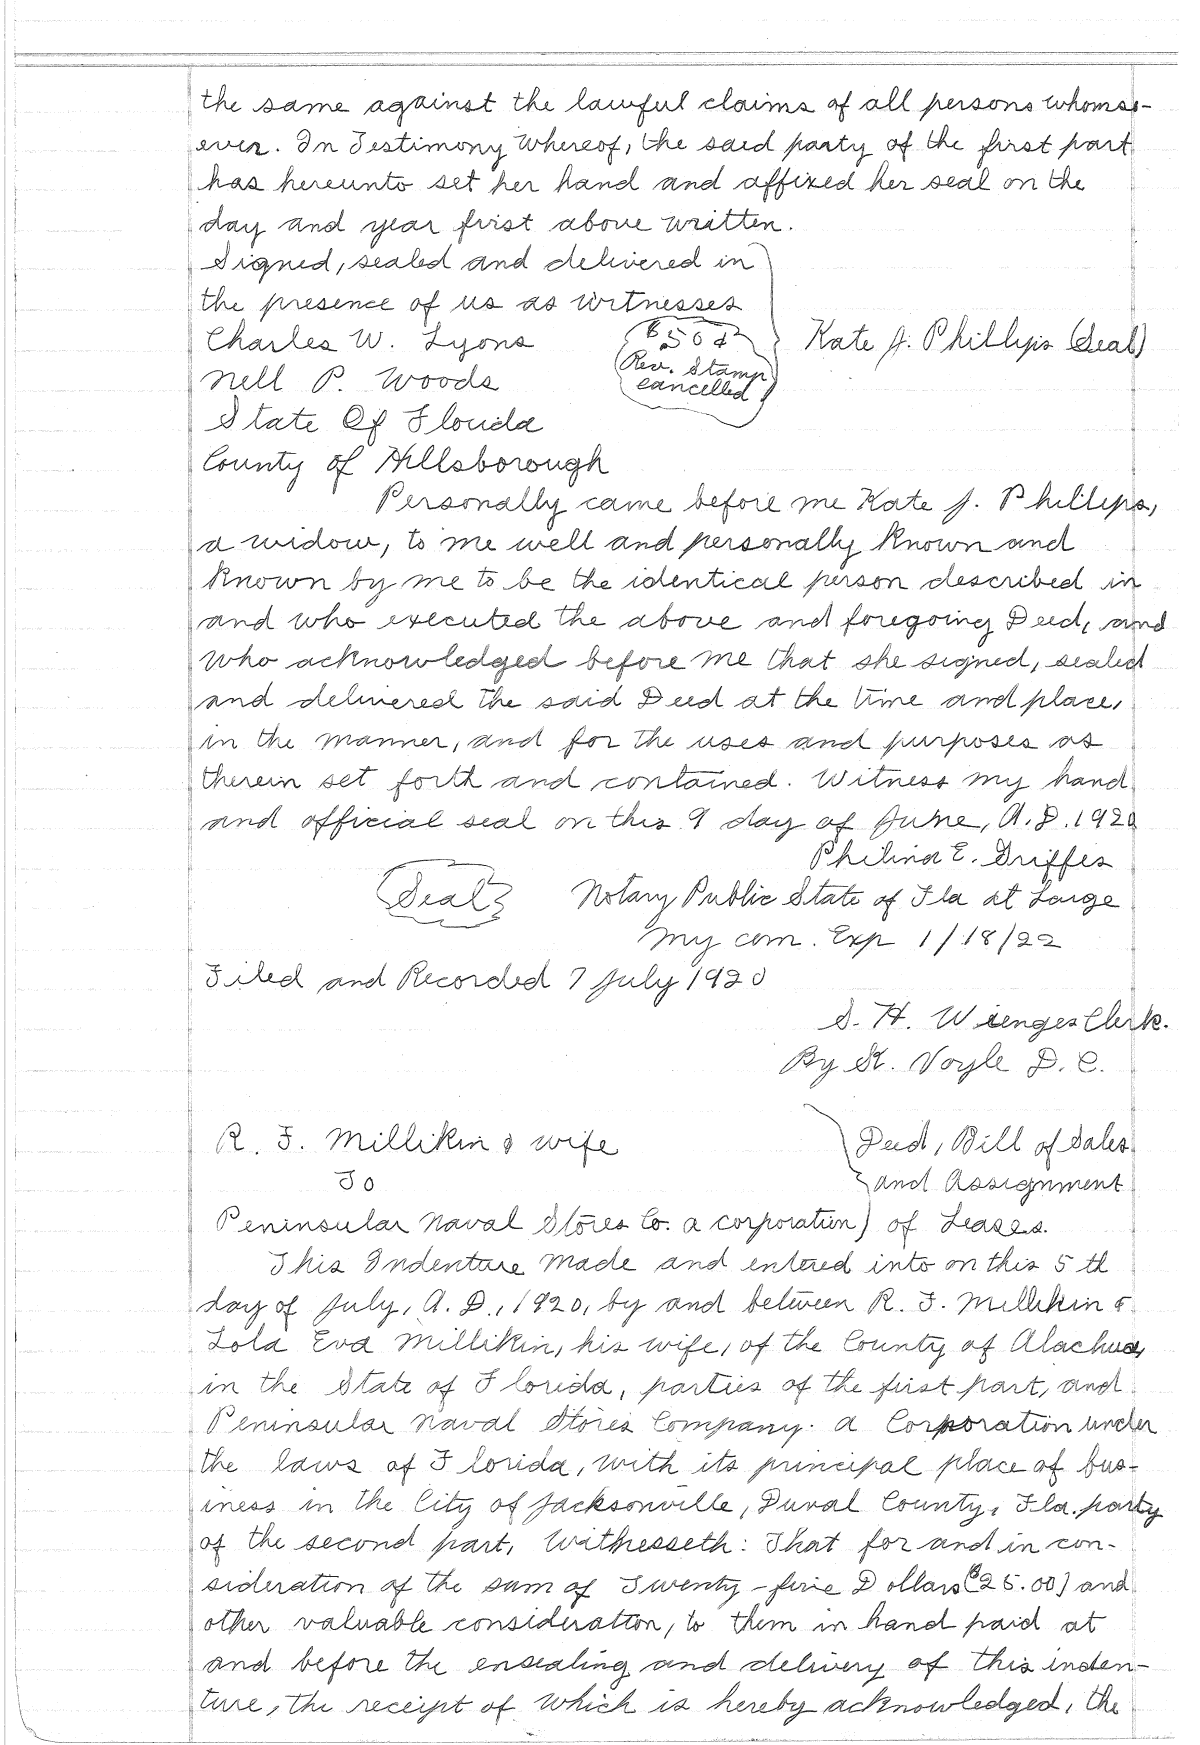 the same against the lawful claims of all persons whomso-
ever. In Testimony Whereof, the said party of the first part
has hereunto set her hand and affixed her seal on the
day and year first above written.
Signed, sealed and delivered in
the presence of us as witnesses
Charles W. Lyons
$.50¢
Rev. Stamp
cancelled
Kate J. Phillips (Seal)
Nell P. Woods
State Of Florida
County of Hillsborough
Personally came before me Kate J. Phillips,
a widow, to me well and personally known and
known by me to be the identical person described in
and who executed the above and foregoing Deed, and
who acknowledged before me that she signed, sealed
and delivered the said Deed at the time and place,
in the manner, and for the uses and purposes as
therein set forth and contained. Witness my hand
and official seal on this 9 day of June, A.D. 1920
Philina E. Griffes
(Seal) Notary Public State of Fla at Large
My com. Exp 1/18/22
Filed and Recorded 7 July 1920
S. H. Wienges Clerk.
By St. Voyle D. C.
R. F. Millikin & wife
To
Deed, Bill of Sales
and Assignment
Peninsular Naval Stores Co. a corporation) of Leases.
This Indenture Made and entered into on this 5 th
day of July, A. D., 1920, by and between R. F. Millikin &
Lola Eva Millikin, his wife, of the County of Alachua,
in the State of Florida, parties of the first part, and
Peninsular Naval Stores Company. a Corporation under
the laws of Florida, with its principal place of bus-
iness in the City of Jacksonville, Duval County, Fla. party
of the second part, Witnesseth: That for and in con-
sideration of the sum of Twenty-five Dollars ($25.00) and
other valuable consideration, to them in hand paid at
and before the ensealing and delivery of this inden-
ture, the receipt of which is hereby acknowledged, the